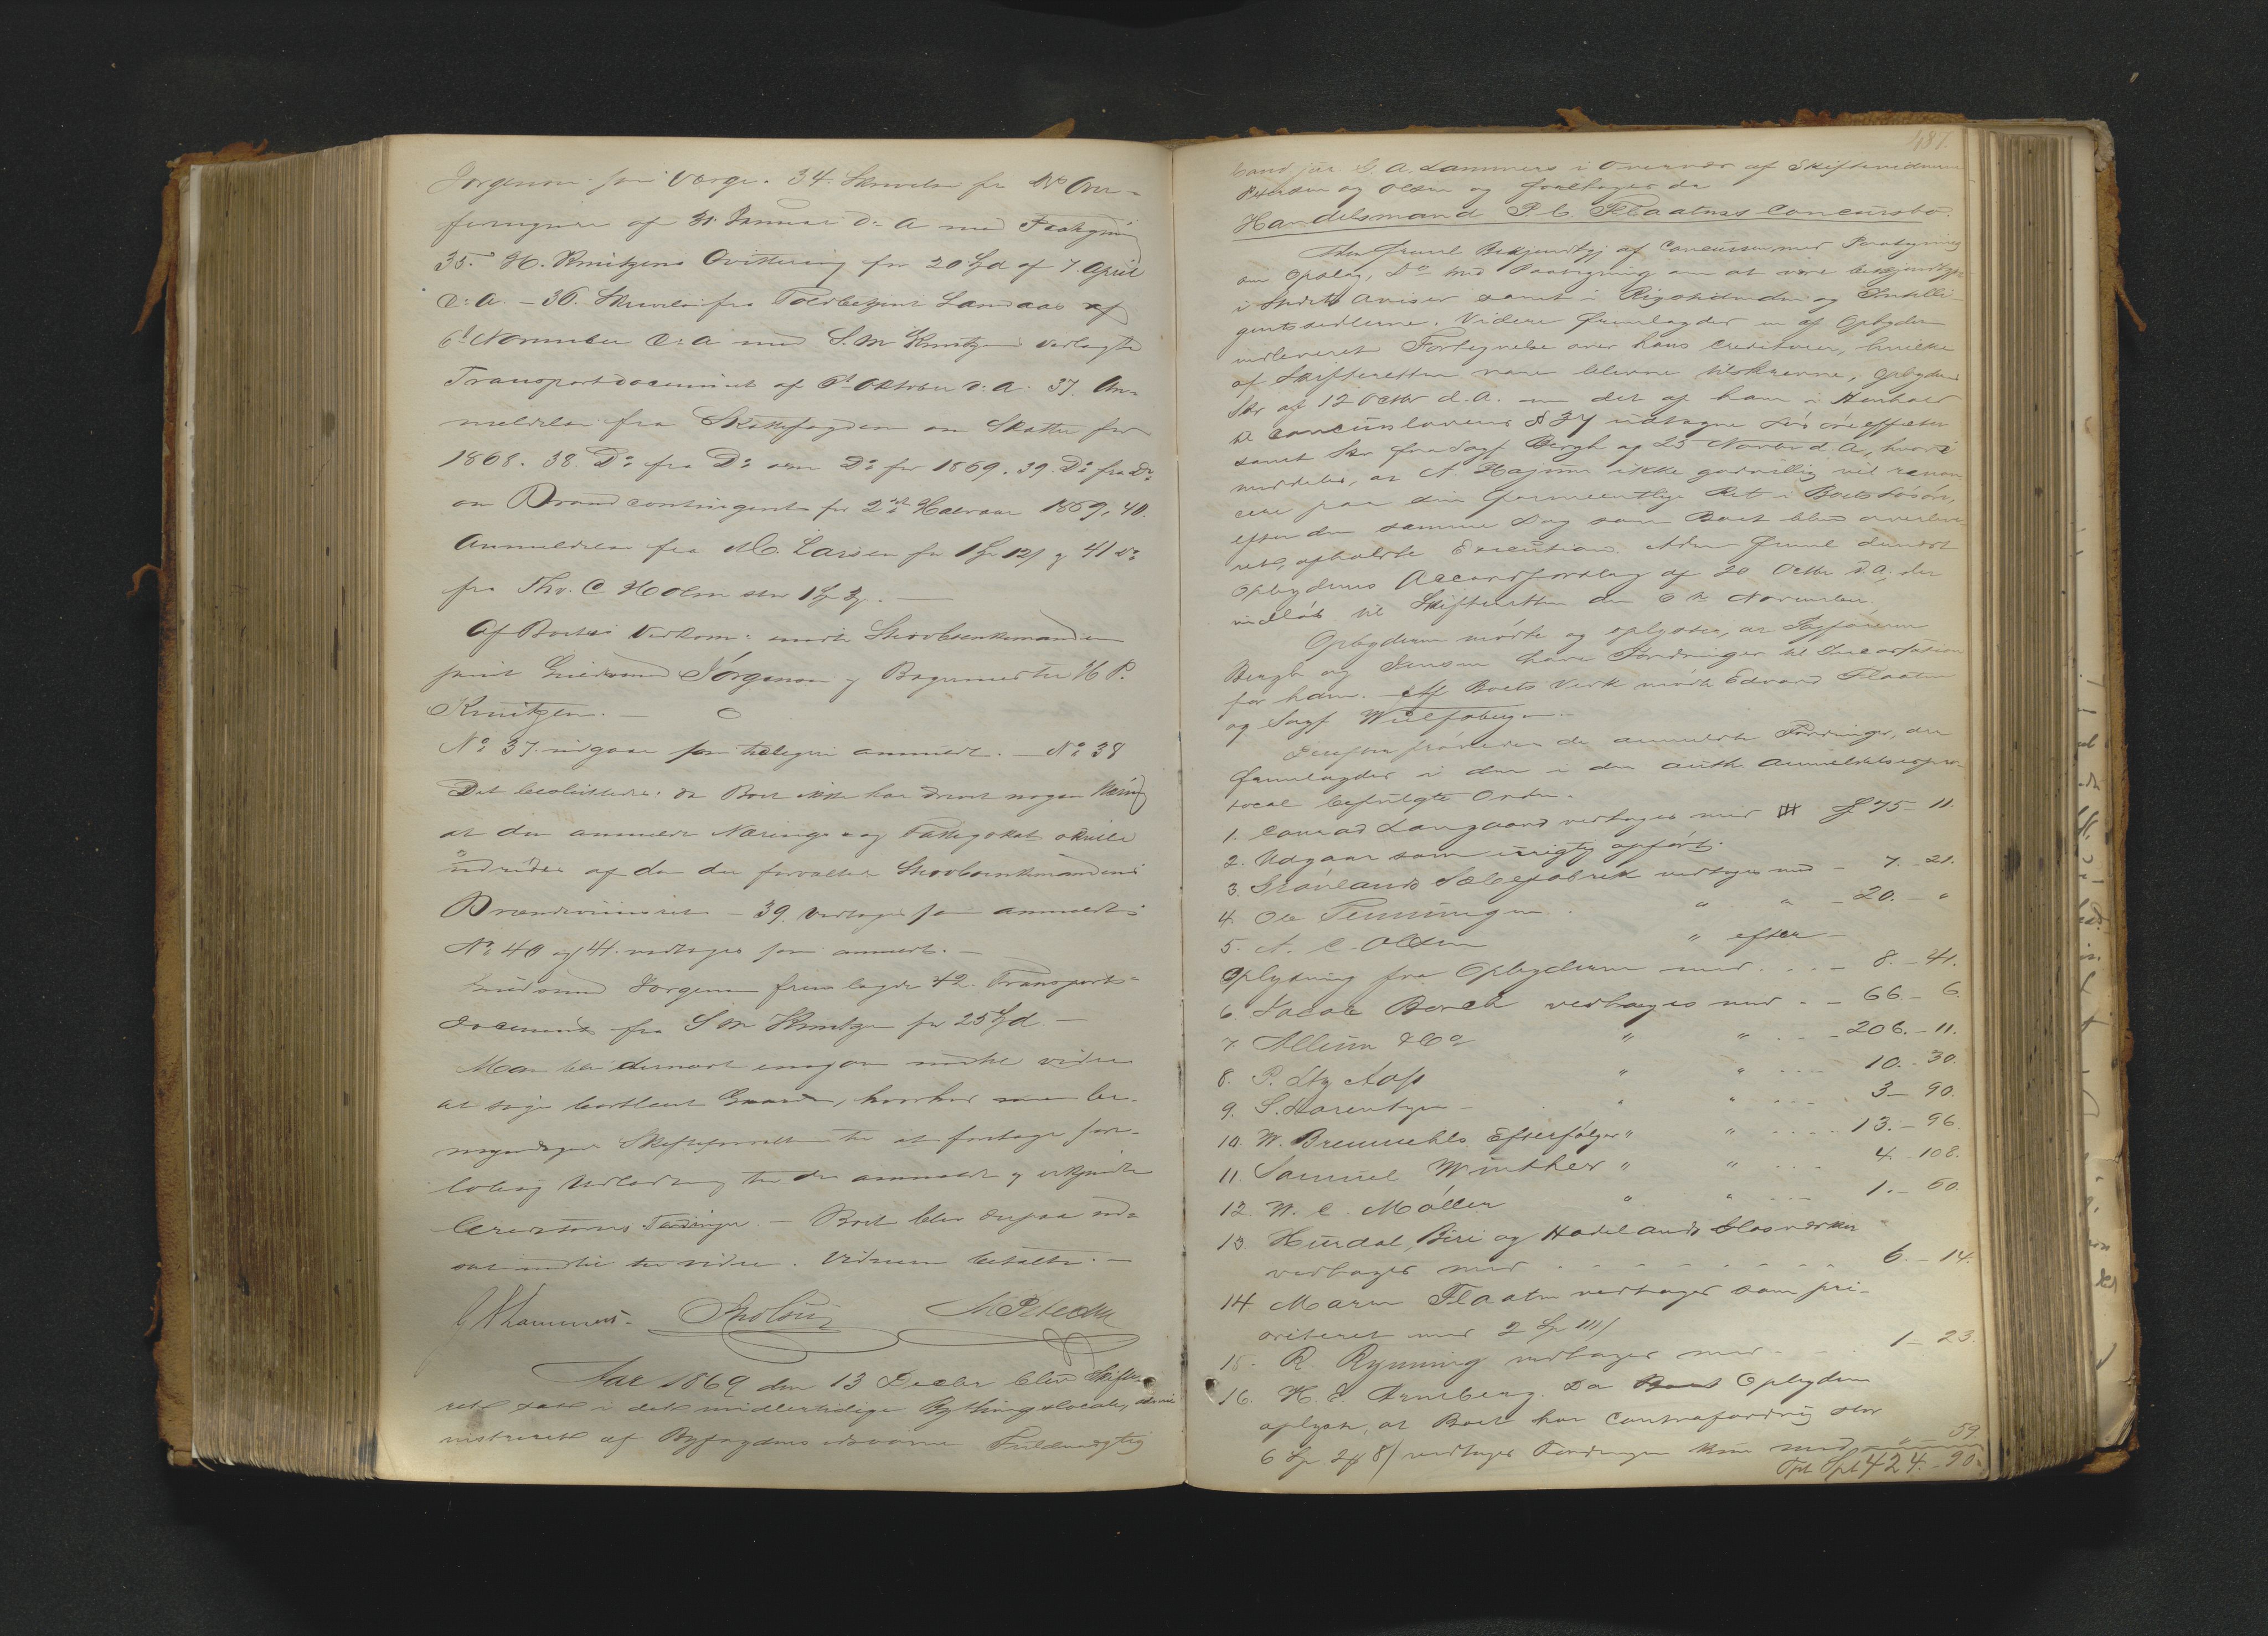 Jørgensen som Værge. 34. Skrivelse fra Dr Over=
formynderi af 31 Januar d: A med Paategning
35. H. Knutzens Qvittering for 20 Spd af 7. April
d: A. – 36. Skrivelse fra Toldbetjent Landaas af
6te November d: A med S. M Knutzen vedlagte
Transportdocument af 6te Oktober d: A. 37. An=
meldelse fra Skattefogden om Skatter for
1868. 38. Do fra Do om Do for 1869. 39. Do fra Do
om Brandcontingent for 2det Halvaar 1869. 40.
Anmeldelse fra M C. Larsen for 1 Sp 12 / og 41 Do
fra Thv. C Holm stor 1 Sp
Af Boets Vedkom: mødte Skovbænkemanden
samt Gudmund Jørgensen og Bagermester H P.
Knutzen. —
No 37. udgaar som tidligere anmeldt. — No 38
Det besluttedes: da Boet ikke har drevet nogen Næring
at den anmeldte Nærings og Fattigskat skulle
udredes af den der forvalter Skovbænkmandens
Brændeviinsret – 39. vedtages som anmeldt.
No 40 og 41. vedtages som anmeldt. –
Gudmund Jørgensen fremlagde 42. Transport=
document fra S M Knutzen for 25 Spd —
Man blev dernæst enig om indtil videre
at søge bortleiet Gaarden, hvorhos man be-
myndigede Skifteforvalteren til at foretage fore-
løbig Udlodning til de anmeldte og vedtagne
Creditorers Fordringer. — Boet blev derpaa ud=
sat indtil til videre. Vidnerne betalte. —
G A Lammers. Pedersen
Aar 1869 den 13 Decbr blev Skifte-
ret sat i det midlertidige Bythingslocale, admi
nistreret af Byfogdens edsvorne Fuldmægtig
481.
Cand. jur. G. A. Lammers i Overvær af Skiftevidnerne
Petersen og Olsen og foretoges da
Handelsmand P. C. Flaatens Concursbo.
Man freml Bekjendtgj af Concursen med Paategning
om Opslag, Do med Paategning om at være bekjendtgj:
i Stedets Aviser samt i Rigstidenden og Intelli-
gentssedlerne. Videre fremlagdes en af Opbyderen
indleveret Fortegnelse over hans Creditorer, hvilke
af Skifteretten vare blevne tilskrevne, Opbyderens
Skr af 12 Octbr d. A. om det af ham i Henhold
til Concurslovens § 37 udtagne Løsøreeffecter
samt Skr fra Sagf Bergh af 25 Novbr d. A., hvori
meddeles, at A. Hajum ikke godvillig vil renon
cere paa sin formeentlige Ret i Boets Løsøre,
efter den samme Dag som Boet blev overleve
ret, afholdte Execution. Man freml dernæst
Opbyderens Accordforslag af 20 Octbr d. A., der
indløb til Skifteretten den 6te November.
Opbyderen mødte og oplyste, at Sagførerne
Bergh og Jensen have Fordringer til Incassation
for ham. – Af Boets Vedk mødte Edvard Flaaten
og Sagf Wulfsberg. –
Derefter prøvedes de anmeldte Fordringer, der
fremlagdes i den i den auth. Anmeldelsespro-
tocol befulgte Orden.
1. Conrad Langaard vedtages med Sp 75 – 11.
2. Udgaar som urigtig opført.
3. Grønlands Sæbefabrik vedtages med – 7. – 21.
4. Ole Temmingen " " – 20. – "
5. A. C. Olsen " efter –
Oplysning fra Opbyderen med . . . – 8. – 41.
6. Jacob Borch vedtages med . – 66 – 6.
7. Allum & Co " " . . . – 206. – 11.
8. P. Ltz Aass " " . . . . 10. – 30.
9. S. Lorentzen – " " . . . . 3 – 90.
10. W. Bremuehls Efterfølger " " . . . . 13. – 96.
11. Samuel Winther " " . . . 4 – 108.
12. N. C. Møller " " . . . 1. – 60.
13. Hurdal, Biri og Hadelands Glasværker
vedtages med . . . . . . . . 6. – 14.
14. Maren Flaaten vedtages som pri-
oriteret med 2 Sp 111 /
15. R. Rynning vedtages med . . . 1 – 23.
16. H. E Arneberg. Da Boet Opbyderen
oplyste, at Boet har Contrafordring stor
6 Sp 2 8 / vedtages Fordringen kun med " – 59
Tpt Spd 424. – 90.